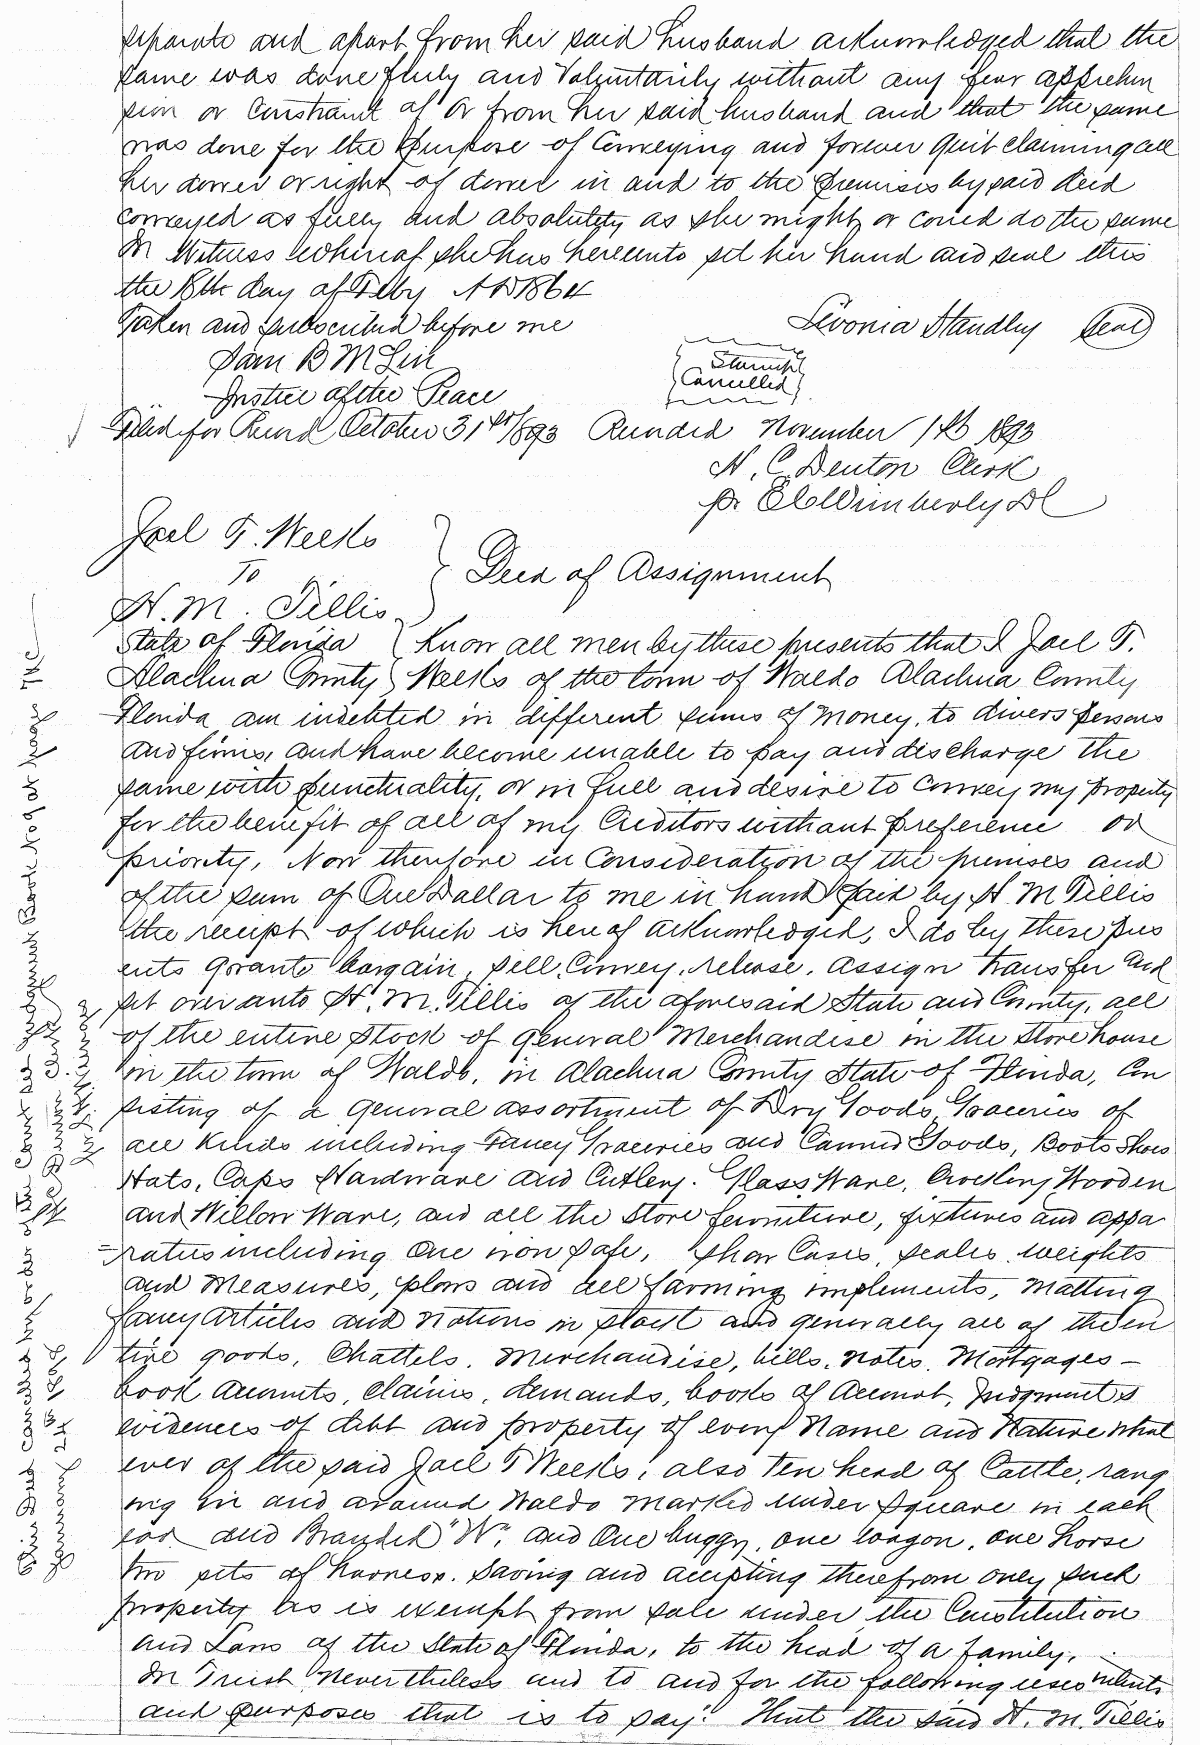 separate and apart from her said husband acknowledged that the
same was done freely and Voluntarily without any fear apprehen
sion or Constraint of or from her said husband and that the same
was done for the purpose of Conveying and forever Quit claiming all
her dower or right of dower in and to the premises by said deed
conveyed as fully and absolutely as she might or could do the same
In Witness whereof she has hereunto set her hand and seal this
the 18th day of Feby AD 1864
Taken and subscribed before me
Livonia Standley Seal
Sam B McLin
Stamp
Cancelled
Justice of the Peace
Filed for Record October 31st 1893 Recorded November 1st 1893
N. C. Denton Clerk
pr Wimberly DC
Joel T. Weeks
To
H. M. Tillis
Deed of Assignment
State of Florida
Alachua County
Know all men by these presents that I Joel T.
Weeks of the town of Waldo Alachua County
Florida am indebted in different sums of money, to divers persons
and firms, and have become unable to pay and discharge the
same with punctuality, or in full and desire to convey my property
for the benefit of all of my Creditors without preference or
priority, Now therefore in Consideration of the premises and
of the sum of One Dollar to me in hand paid by H M Tillis
the receipt of which is hereof acknowledged, I do by these pres
ents grant bargain, sell, Convey, release, assign transfer and
set over unto H. M. Tillis of the aforesaid State and County, all
of the entire stock of general Merchandise in the store house
in the town of Waldo, in Alachua County State of Florida, Con
sisting of a general assortment of Dry Goods, Groceries of
all kinds including Fancy Groceries and Canned Goods, Boots Shoes
Hats, Caps Hardware and Cutlery. Glass Ware, Crockery Wooden
and Willow Ware, and all the store furniture, fixtures and appa
=ratus including One iron safe, show Cases, scales, weights
and Measures, plows and all farming implements, Matting
fancy articles and notions in stock and generally all of the en
tire goods, Chattels, Merchandise, bills, notes, Mortgages -
book Accounts, claims, demands, books of Account, Judgments
evidences of debt and property of every Name and Nature what
ever of the said Joel T Weeks, also Ten head of Cattle, rang
ing in and around Waldo marked under square in each
ear and Branded "W", and One buggy, one wagon, one horse
two sets of harness. Saving and accepting therefrom only such
property as is exempt from sale under the Constitution
and Laws of the State of Florida, to the head of a family,
In Trust Nevertheless and to and for the following uses intents
and purposes that is to say: That the said H. M. Tillis